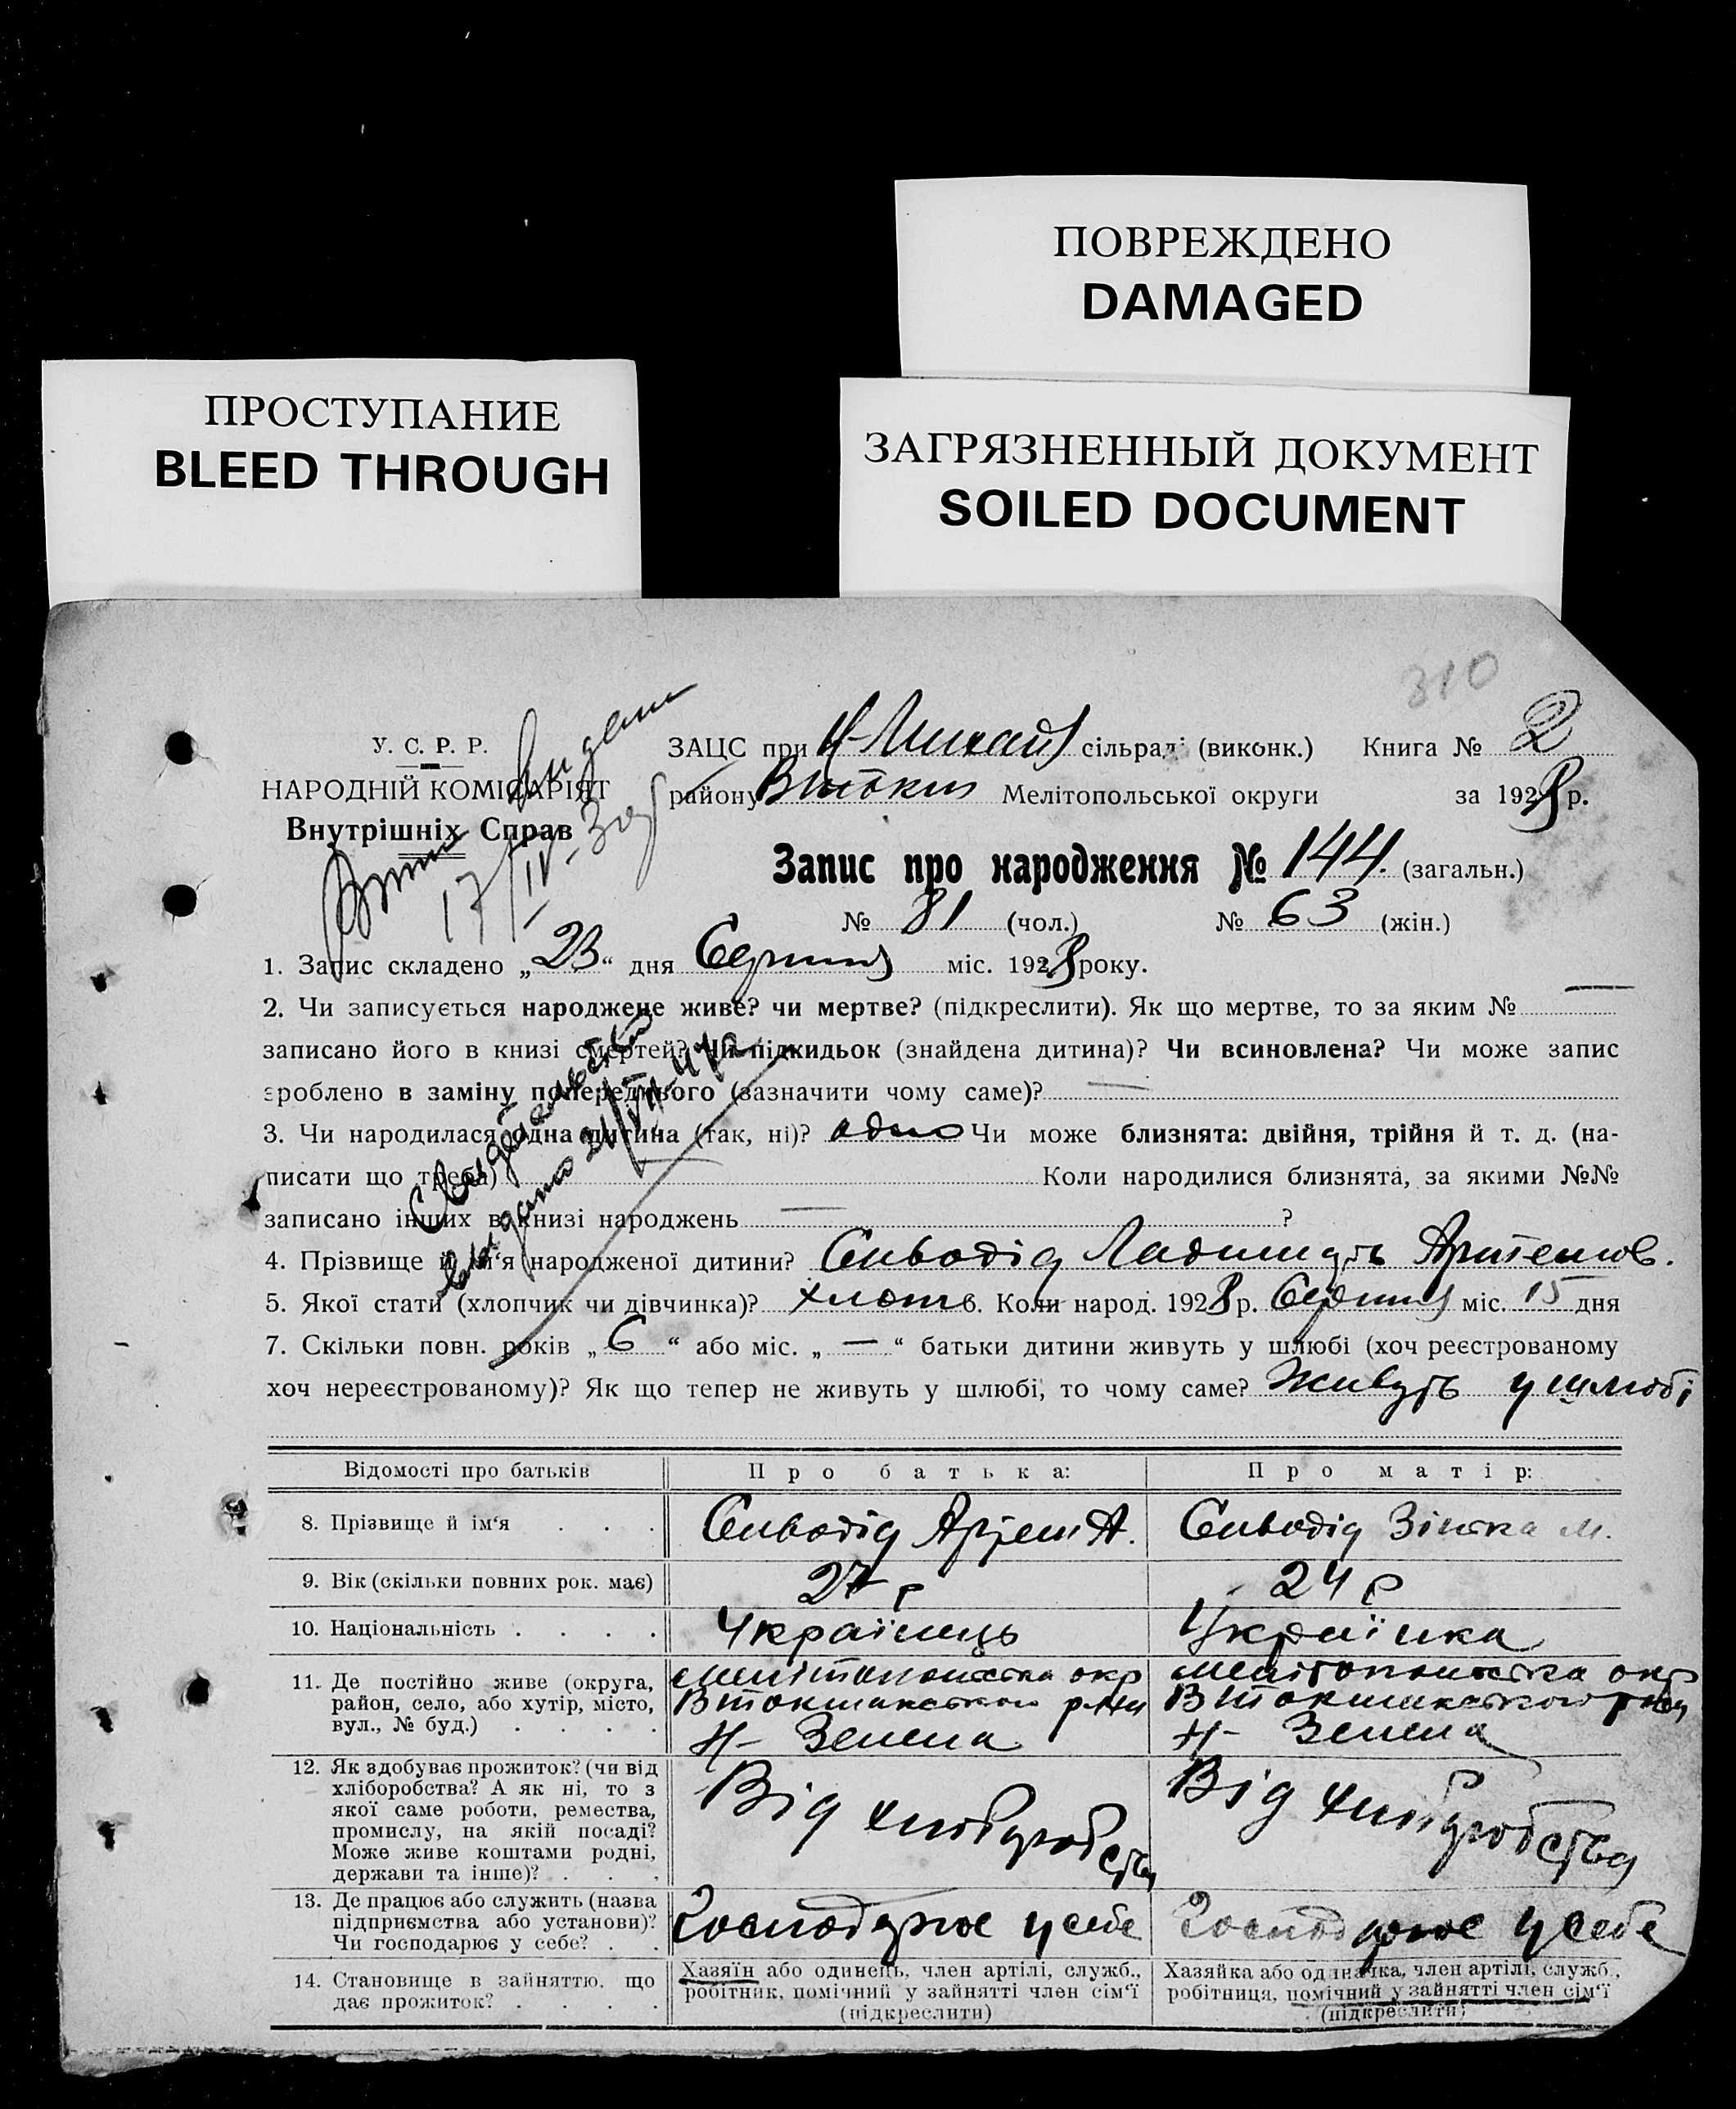 ПОВРЕЖДЕНО
DAMAGED
ПРОСТУПАНИЕ
BLEED THROUGH
ЗАГРЯЗНЕННЫЙ ДОКУМЕНТ
SOILED DOCUMENT
310
У. С. Р. Р.
НАРОДНІЙ КОМІСАРІЯТ
Внутрішніх Справ
17/IV-30
ЗАЦС при сільраді (виконк.) Книга № 2
району Мелітопольської округи за 1928 р.
Запис про народження № 144. (загальн.)
№ 81 (чол.) № 63 (жін.)
1. Запис складено „23“ дня Серпня міс. 1928 року.
2. Чи записується народжене живе? чи мертве? (підкреслити). Як що мертве, то за яким № —
записано його в книзі смертей? Чи підкидьок (знайдена дитина)? Чи всиновлена? Чи може запис
зроблено в заміну попереднього (зазначити чому саме)? —
Свидетельство
выдано
3. Чи народилася одна дитина (так, ні)? одно Чи може близнята: двійня, трійня й т. д. (на-
писати що треба) Коли народилися близнята, за якими №№
записано інших в книзі народжень — ?
4. Прізвище й ім‘я народженої дитини?
5. Якої статі (хлопчик чи дівчинка)? хлопч 6. Коли народ. 1928 р. Серпня міс. 15 дня
7. Скільки повн. років „6“ або міс. „—“ батьки дитини живуть у шлюбі (хоч реєстрованому
хоч нереєстрованому)? Як що тепер не живуть у шлюбі, то чому саме? Живуть у шлюбі
Відомості про батьків Про батька: Про матір:
8. Прізвище й ім‘я
9. Вік (скільки повних рок. має) 27 р 24 р
10. Національність Українець Українка
11. Де постійно живе (округа,
район, село, або хутір, місто,
вул., № буд.)
Мелітопольська окр
Втокмакського р-ну
Н- Зелена
Мелітопольська окр
Втокмакського р-ну
Н- Зелена
12. Як здобуває прожиток? (чи від
хліборобства? А як ні, то з
якої саме роботи, ремества,
промислу, на якій посаді?
Може живе коштами родні,
держави та інше)?
Від хліборобства
Від хліборобства
13. Де працює або служить (назва
підприємства або установи)?
Чи господарює у себе?
Господарює у себе
Господарює у себе
14. Становище в зайняттю, що
дає прожиток?
Хазяїн або одинець, член артілі, служб.,
робітник, помічний у зайнятті член сім‘ї
(підкреслити)
Хазяйка або одиначка, член артілі, служб.,
робітниця, помічний у зайнятті член сім‘ї
(підкреслити)